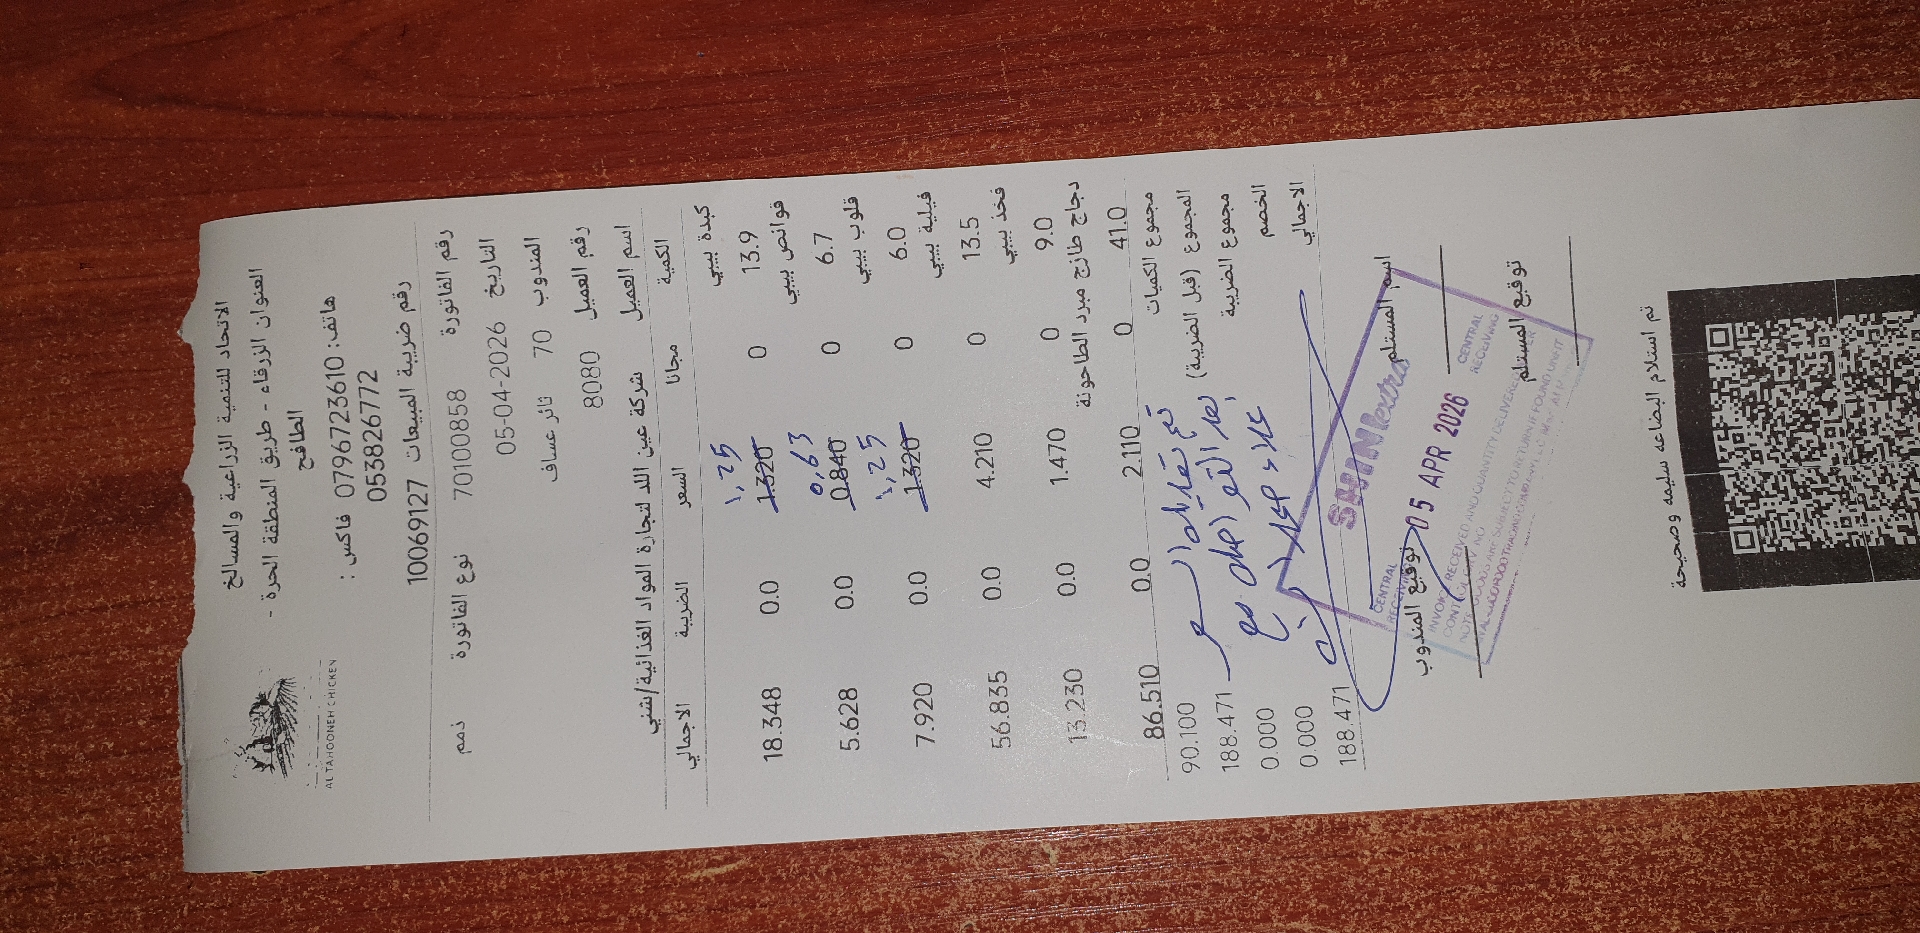 AL TAHOONEH CHICKEN
الاتحاد للتنمية الزراعية والمسالخ
العنوان الزرقاء - طريق المنطقة الحرة -
الطافح
هاتف: 0796723610 فاكس :
053826772
رقم ضريبة المبيعات 10069127
رقم الفاتورة 70100858 نوع الفاتورة ذمم
التاريخ 05-04-2026
المندوب 70 ثائر عساف
رقم العميل 8080
اسم العميل شركة عين اللد لتجارة المواد الغذائية/شني
الكمية مجانا السعر الضريبة الاجمالي
كبدة بيبي
1,25
13.9 0 1.320 0.0 18.348
قوانص بيبي
0,63
6.7 0 0.840 0.0 5.628
قلوب بيبي
1,25
6.0 0 1.320 0.0 7.920
فيلية بيبي
13.5 0 4.210 0.0 56.835
فخذ بيبي
9.0 0 1.470 0.0 13.230
دجاج طازج مبرد الطاحونة
41.0 0 2.110 0.0 86.510
مجموع الكميات 90.100
المجموع (قبل الضريبة) 188.471
مجموع الضريبة 0.000
الخصم 0.000
الاجمالي 188.471
تم تعديل
بعد التواصل مع
علاء
اسم المستلم
توقيع المستلم
توقيع المندوب
CENTRAL RECEIVING
CENTRAL RECEIVING
05 APR 2026
تم استلام البضاعه سليمه وصحيحة